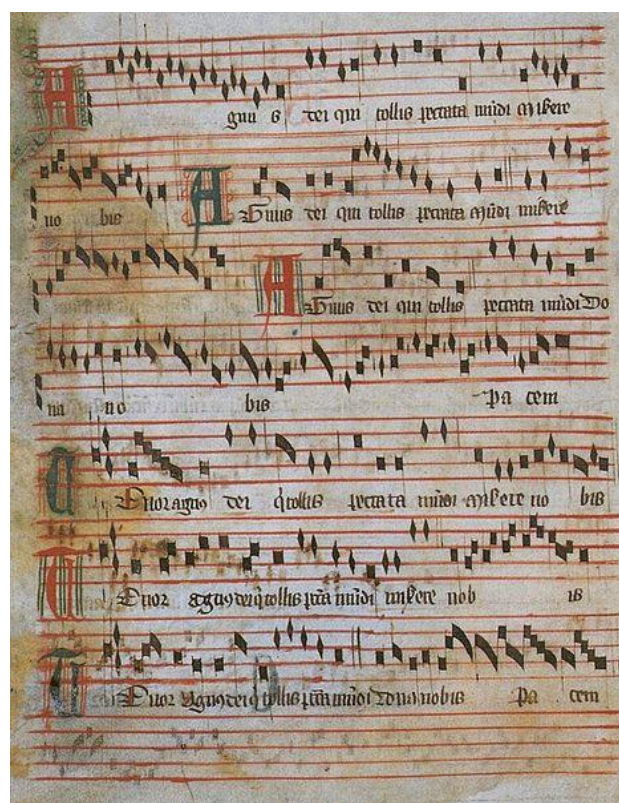 Agnus dei qui tollis peccata mūdi Misere
no bis Agnus dei qui tollis peccata Mūdi misere
Agnus dei qui tollis peccata mūdi Do
na no bis Pa cem
Tenor agnus dei q tollis peccata mūdi Misere no bis
Tenor agnus dei q tollis pcca mūdi misere nob is
Tenor Agnus dei q tollis pcca mūdi Dona nobis Pa cem